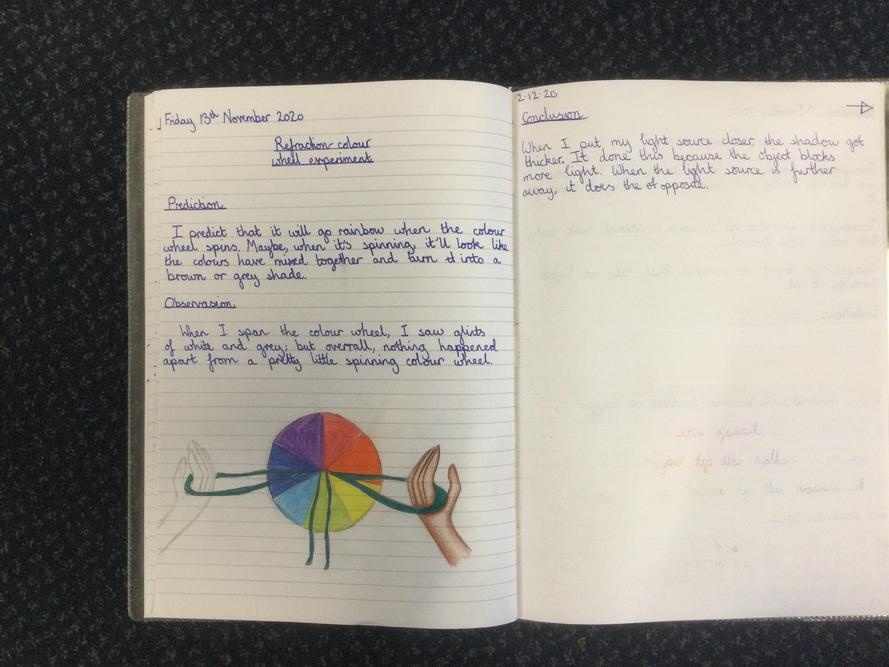 Friday 13th November 2020
Refraction colour
whell experiment
Prediction
I predict that it will go rainbow when the colour
wheel spins. Maybe, when it's spinning, it'll look like
the colours have mixed together and turn it into a
brown or grey shade.
Observasion
When I span the colour wheel, I saw glints
of white and grey; but overrall, nothing happened
apart from a pretty little spinning colour wheel.
2.12.20
Conclusion
When I put my light source closer, the shadow got
thicker. It done this because the object blocks
more light. When the light source is further
away, it does the opposite.